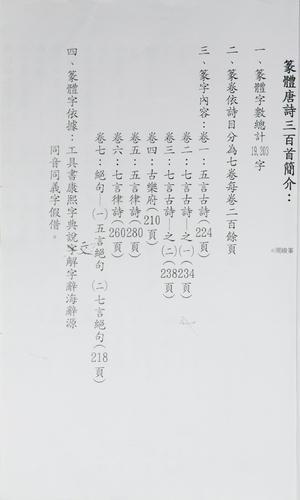 篆體唐詩三百首簡介：
一、篆體字數總計19,303字
二、篆卷依詩目分為七卷每卷二百餘頁
三、篆字內容：卷一：五言古詩（224頁
卷二：七言古詩—之(一)234頁
卷三：七言古詩—之(二)238頁
卷四：古樂府（210頁
卷五：五言律詩（280頁
卷六：七言律詩（260頁
卷七：絕句—(一)五言絕句 (二)七言絕句（218頁
四、篆體字依據：工具書康熙字典說文解字辭海辭源
同音同義字假借。